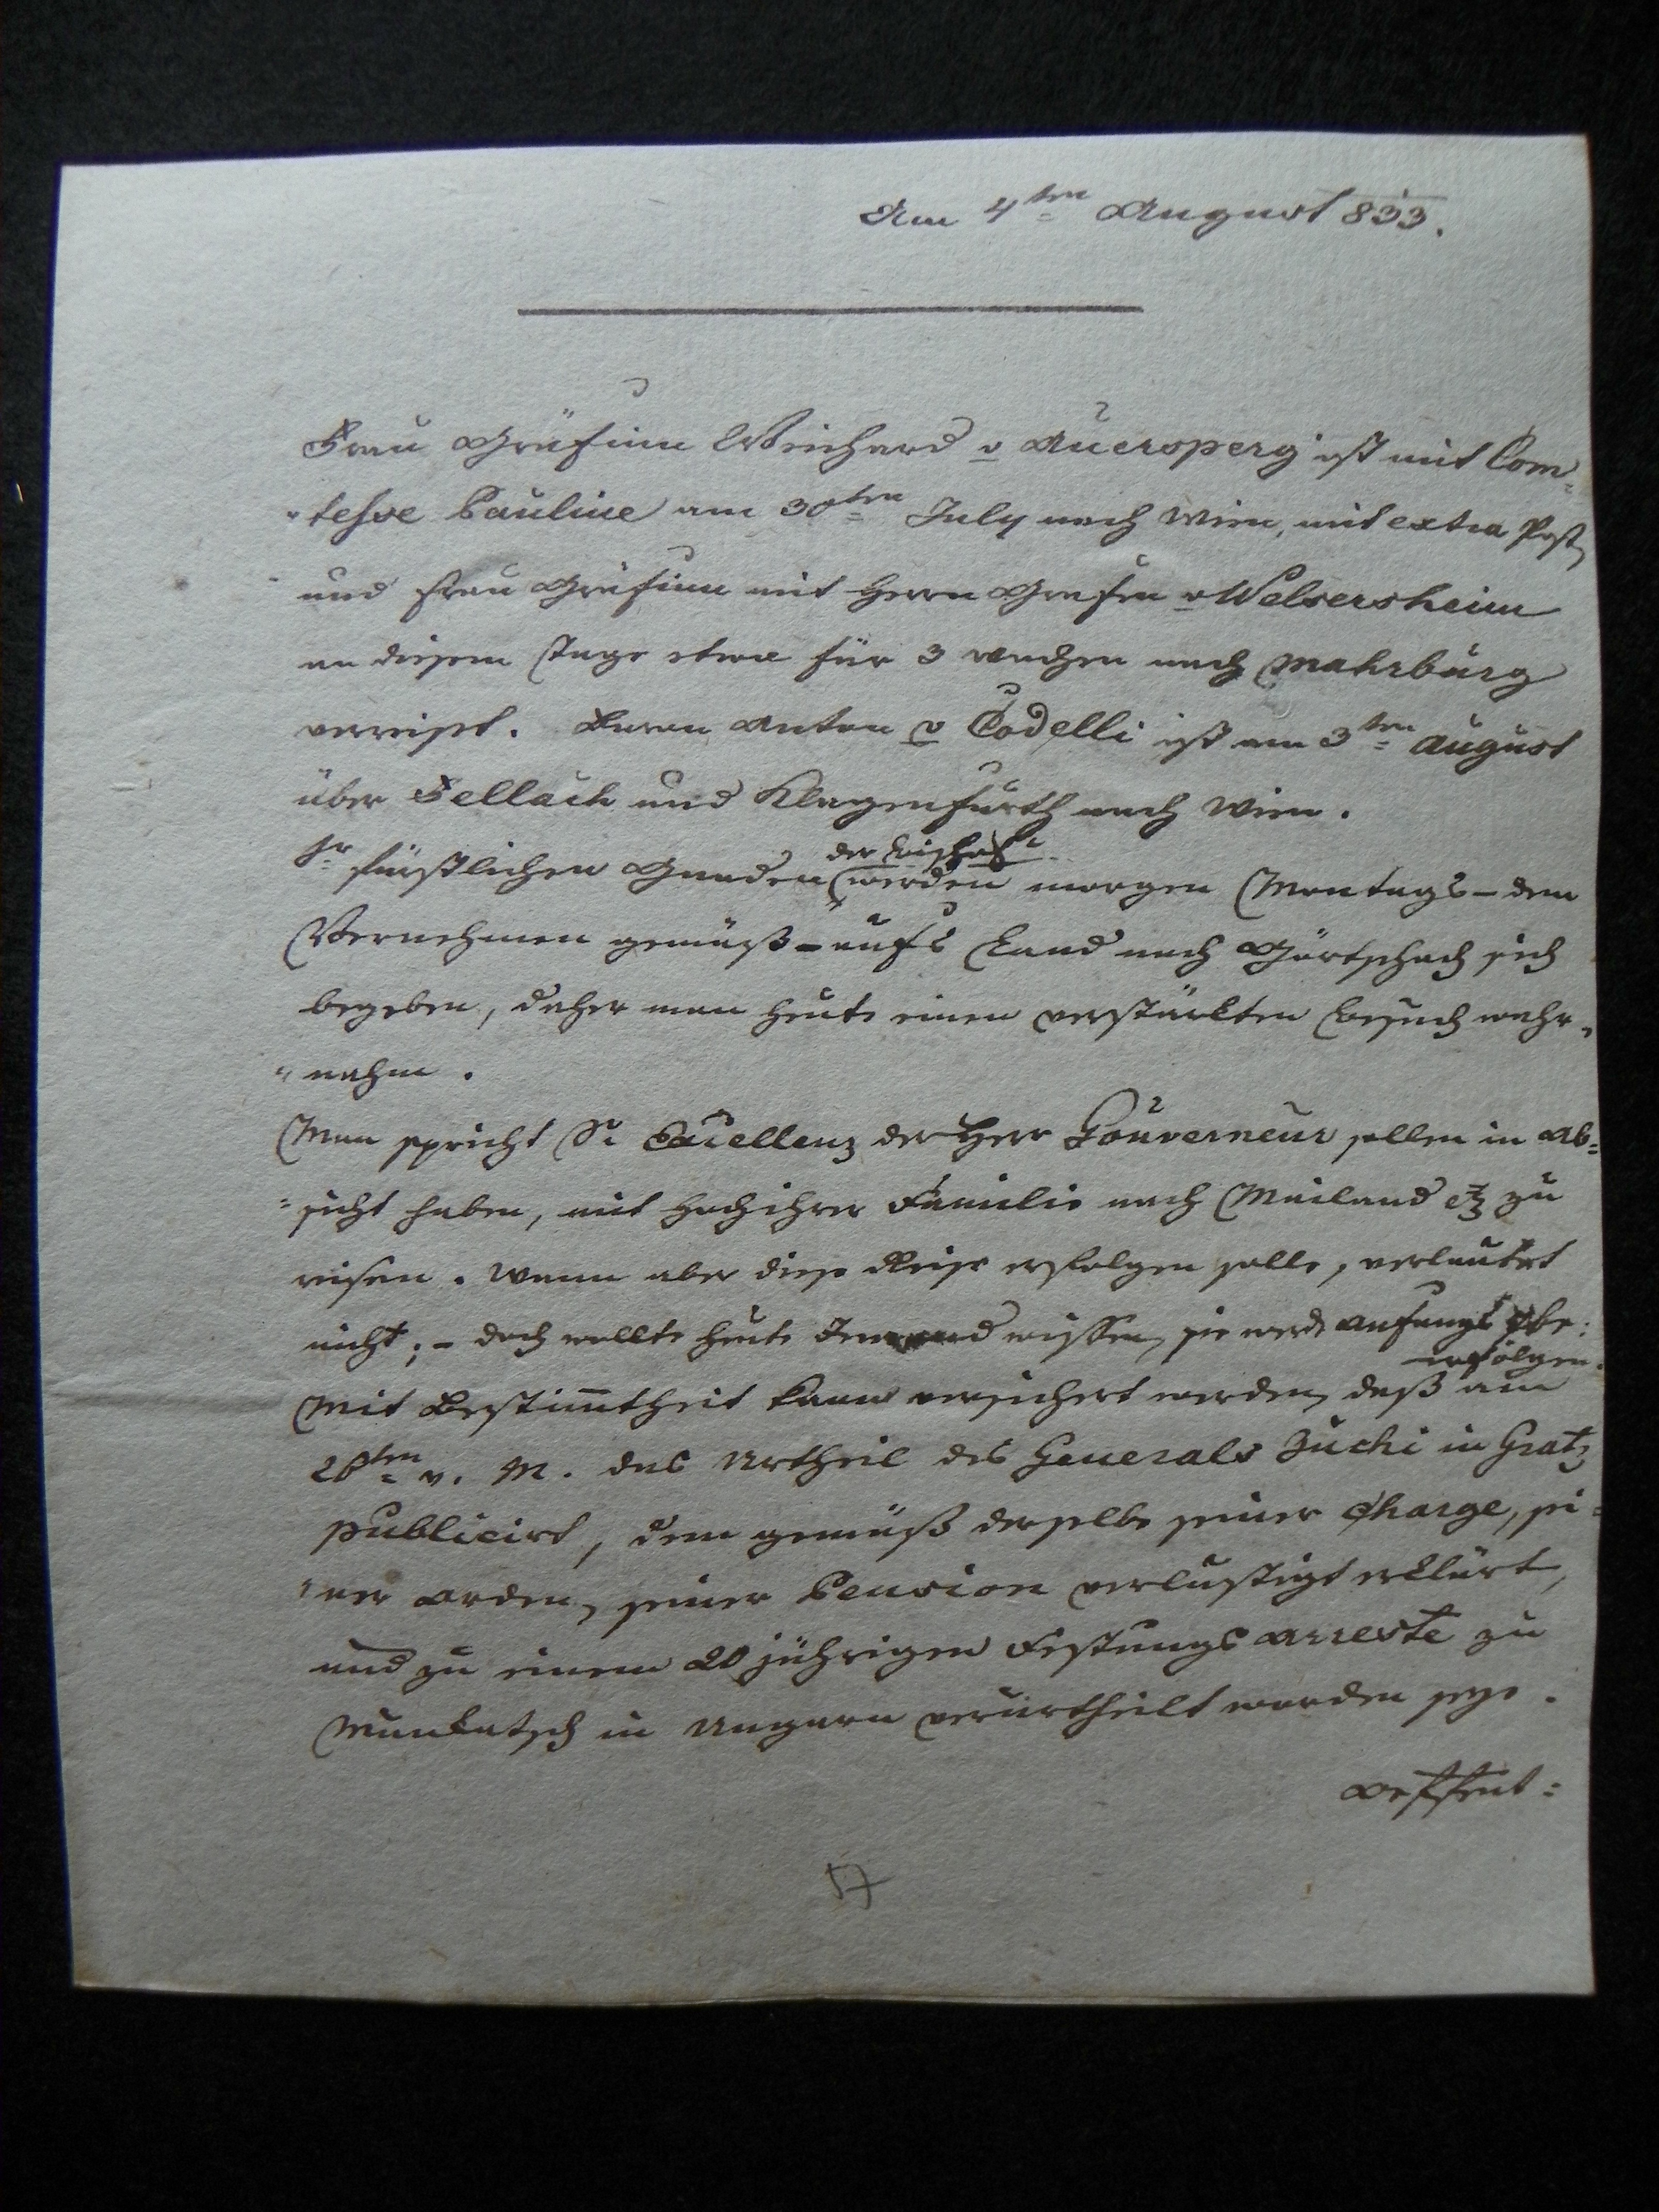 Am 4ten August 833.
Frau Gräfinn Weichard v Auersperg ist mit Com=
=tesse Pauline am 30ten July nach Wien, mit extra Post,
und Frau Gräfinn mit Herrn Grafen v Welsersheim
an diesem Tage etwa für 3 Wochen nach Mahrburg
verreist. Baron Anton v Codelli ist am 3ten August
über Fellach und Klagenfurth nach Wien.
Sr fürstlichen Gnaden (der Bischof werden morgen Montags – dem
Vernehmen gemäß – aufs Land nach Görtschach sich
begeben, daher man heute einen verstärkten Besuch wahr=
=nahm.
Man spricht Se Excellenz der Herr Gouverneur sollen in Ab=
=sicht haben, mit hochihrer Familie nach Mailand etz zu
reisen. Wann aber diese Reise erfolgen solle, verlautet
nicht; – doch wollte heute Jemand wissen, sie werde anfangs 7be:
erfolgen.
Mit Bestimtheit kann versichert werden, daß am
v. M. das Urtheil des Generals Zuchi in Gratz
publicirt, dem gemäß derselbe seiner Charge, sei=
=ner Orden, seiner Pension verlustigt erklärt,
und zu einem 20 jährigen Festungs Arreste zu
Munkatsch in Ungarn verurtheilt worden seye.
Oeffent=
17